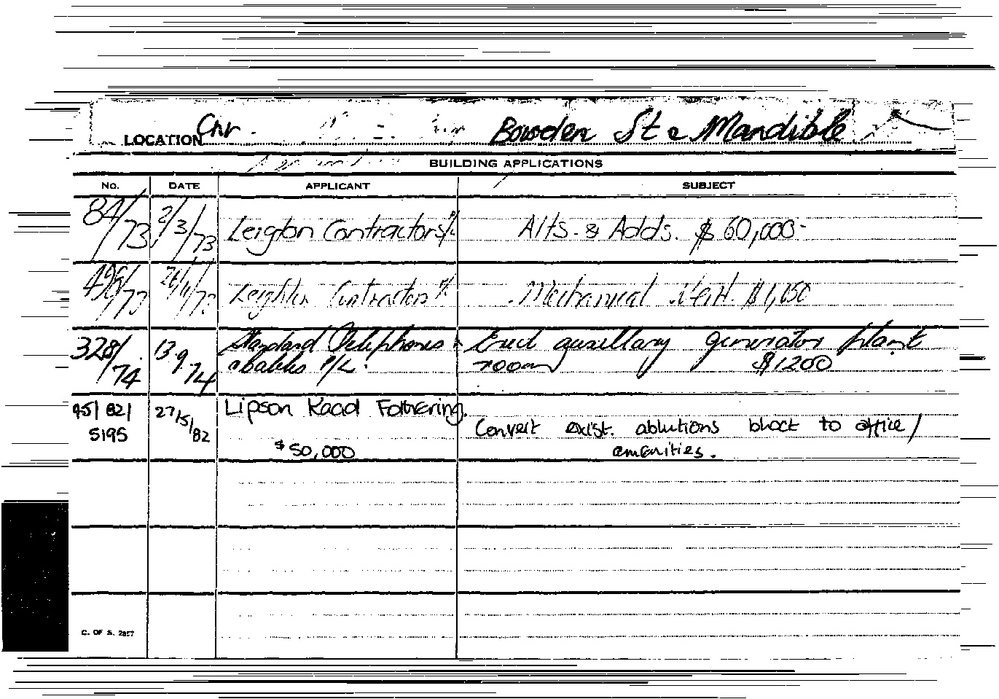 LOCATION Cnr. Bowden St & Mandible
BUILDING APPLICATIONS
No. DATE APPLICANT SUBJECT
84/73 2/3/73 Leigton Contractors P/L Alts. & Adds. $60,000-
/73 Leighton Contractors P/L Mechanical Vent. $1,650
328/74 13.9.74 Standard Telephones & Erect auxillary generator plant
cables P/L. room $1200
95/82/ 27/5/82 Lipson Kaad Fothering.
5195 Convert exist. ablutions block to office/
$50,000 amenities.
C. OF S. 2857